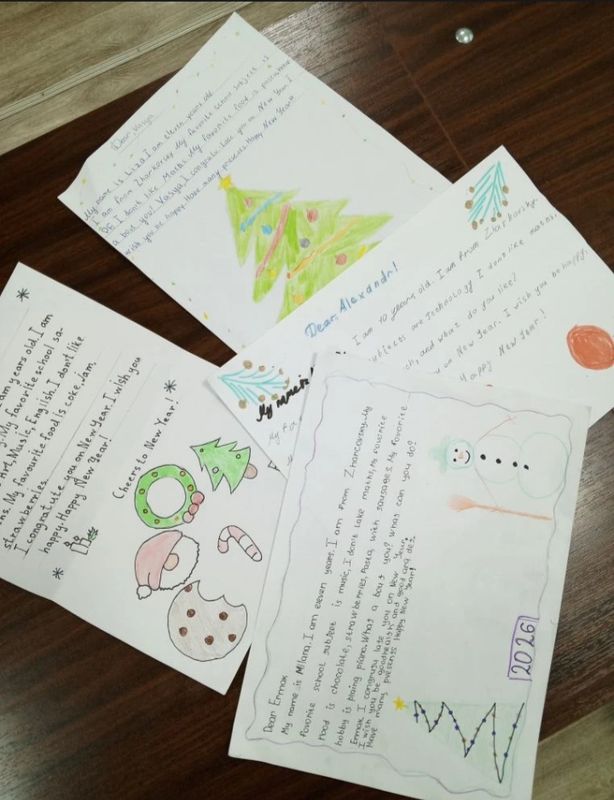 Dear Vasya
My name is Liza. I am eleven years old
I am from Zhankorsky. My favorite school subject is
I don't like Maths. My favorite food is
a bout you? Vasya I congratu late you on New Year. I
wish you be happy. Have many presents. Happy New Year!
Dear, Alexandr!
My name is I am 10 years old. I am from
are Technology I don't like maths.
and what do you like?
on New Year. I wish you be happy.
Happy New Year!
am
years old, I am
My favorite school su-
Art, Music, English, I don't like
My favourite food is cake, jam,
strawberries.
I congratulate you on New Year. I wish you
happy. Happy New Year!
Cheers to New Year!
Dear Ermak
My name is Milana. I am eleven years. I am from Zhancovsky. My
favorite school subject is music, I don't lake maths, My favorite
food is chocolate, strawberries, pasta, with sausages. My favorite
hobby is plaing piano. What a bout you? What can you do?
Ermak I congratu late you on New Year,
I wish you be goodhealth and good gra des.
Have many presents. Happy New Year!
2026